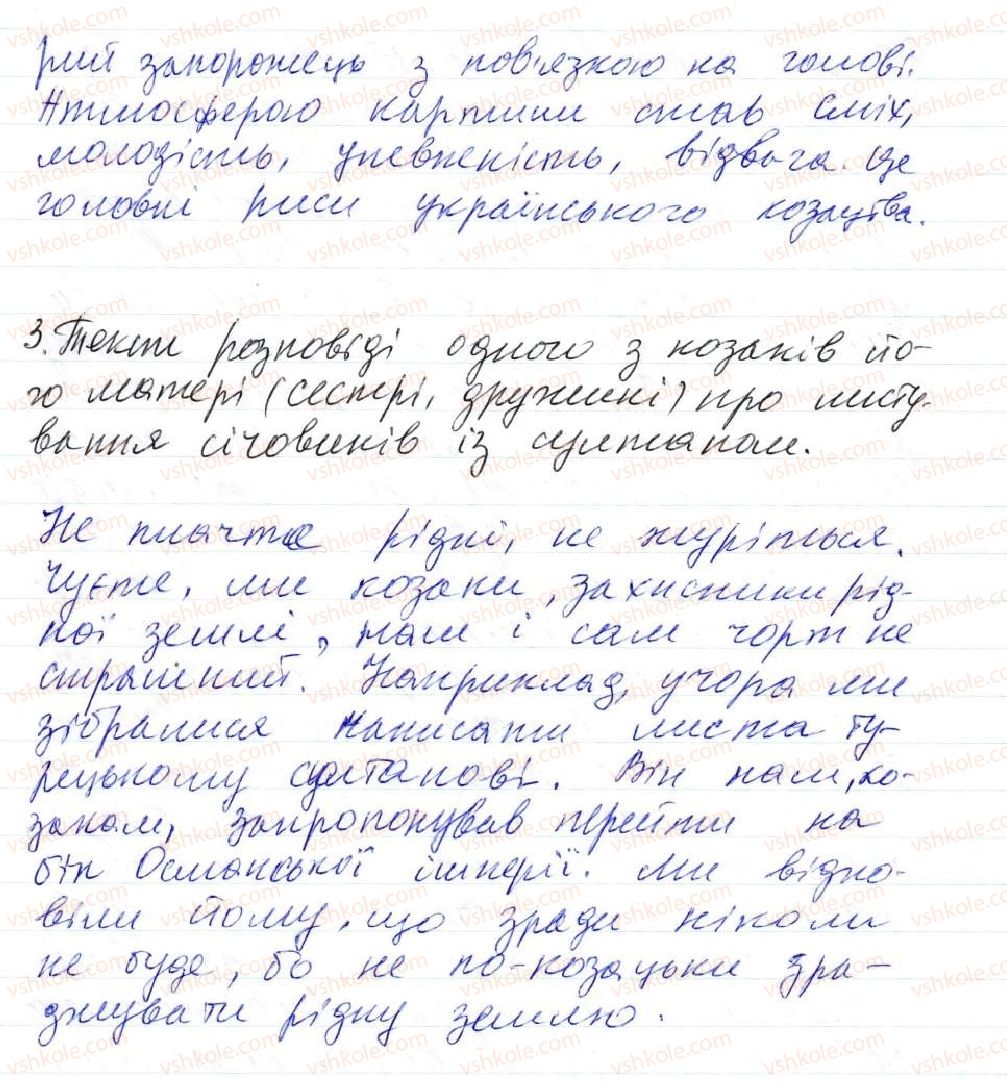 рий запорожець з пов'язкою на голові.
Атмосферою картини став сміх,
молодість, упевненість, відвага. Це
головні риси українського козацтва.
3. Текст розповіді одного з козаків йо-
го матері (сестрі, дружині) про листу-
вання січовиків із султаном.
Не плачте рідні, не журіться.
Чуєте, ми козаки, захисники рід-
ної землі, нам і сам чорт не
страшний. Наприклад, учора ми
зібралися написати листа ту-
рецькому султанові. Він нам, ко-
закам, запропонував перейти на
бік Османської імперії. Ми відпо-
віли йому, що зради ніколи
не буде, бо не по-козацьки зра-
джувати рідну землю.
vshkole.com